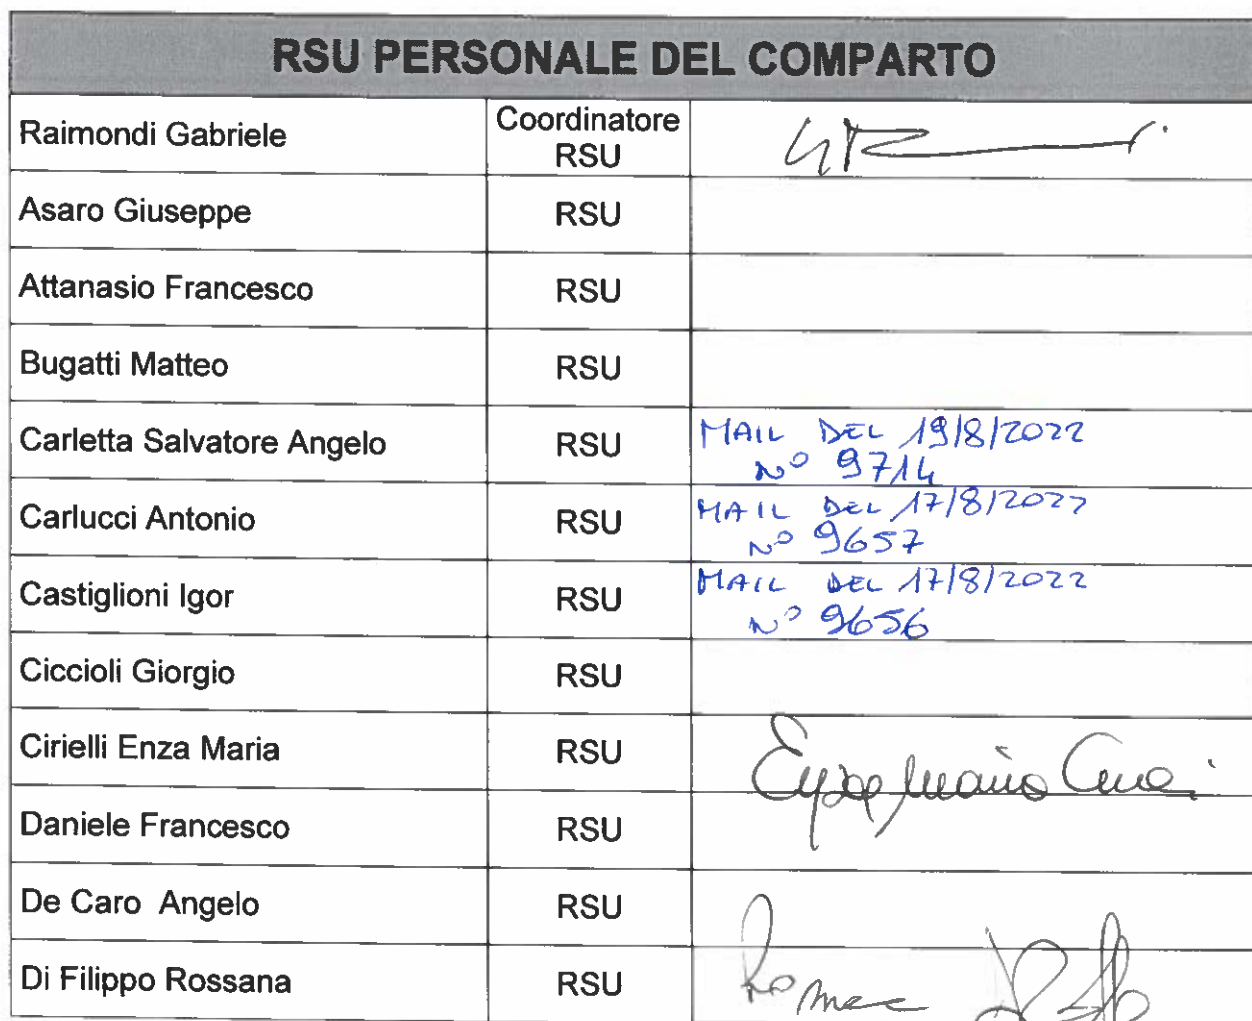 RSU PERSONALE DEL COMPARTO
Raimondi Gabriele
Coordinatore
RSU
Asaro Giuseppe RSU
Attanasio Francesco RSU
Bugatti Matteo RSU
Carletta Salvatore Angelo RSU MAIL DEL 19/8/2022
N° 9714
Carlucci Antonio RSU MAIL DEL 17/8/2022
N° 9657
Castiglioni Igor RSU MAIL DEL 17/8/2022
N° 9656
Ciccioli Giorgio RSU
Cirielli Enza Maria RSU
Daniele Francesco RSU
De Caro Angelo RSU
Di Filippo Rossana RSU